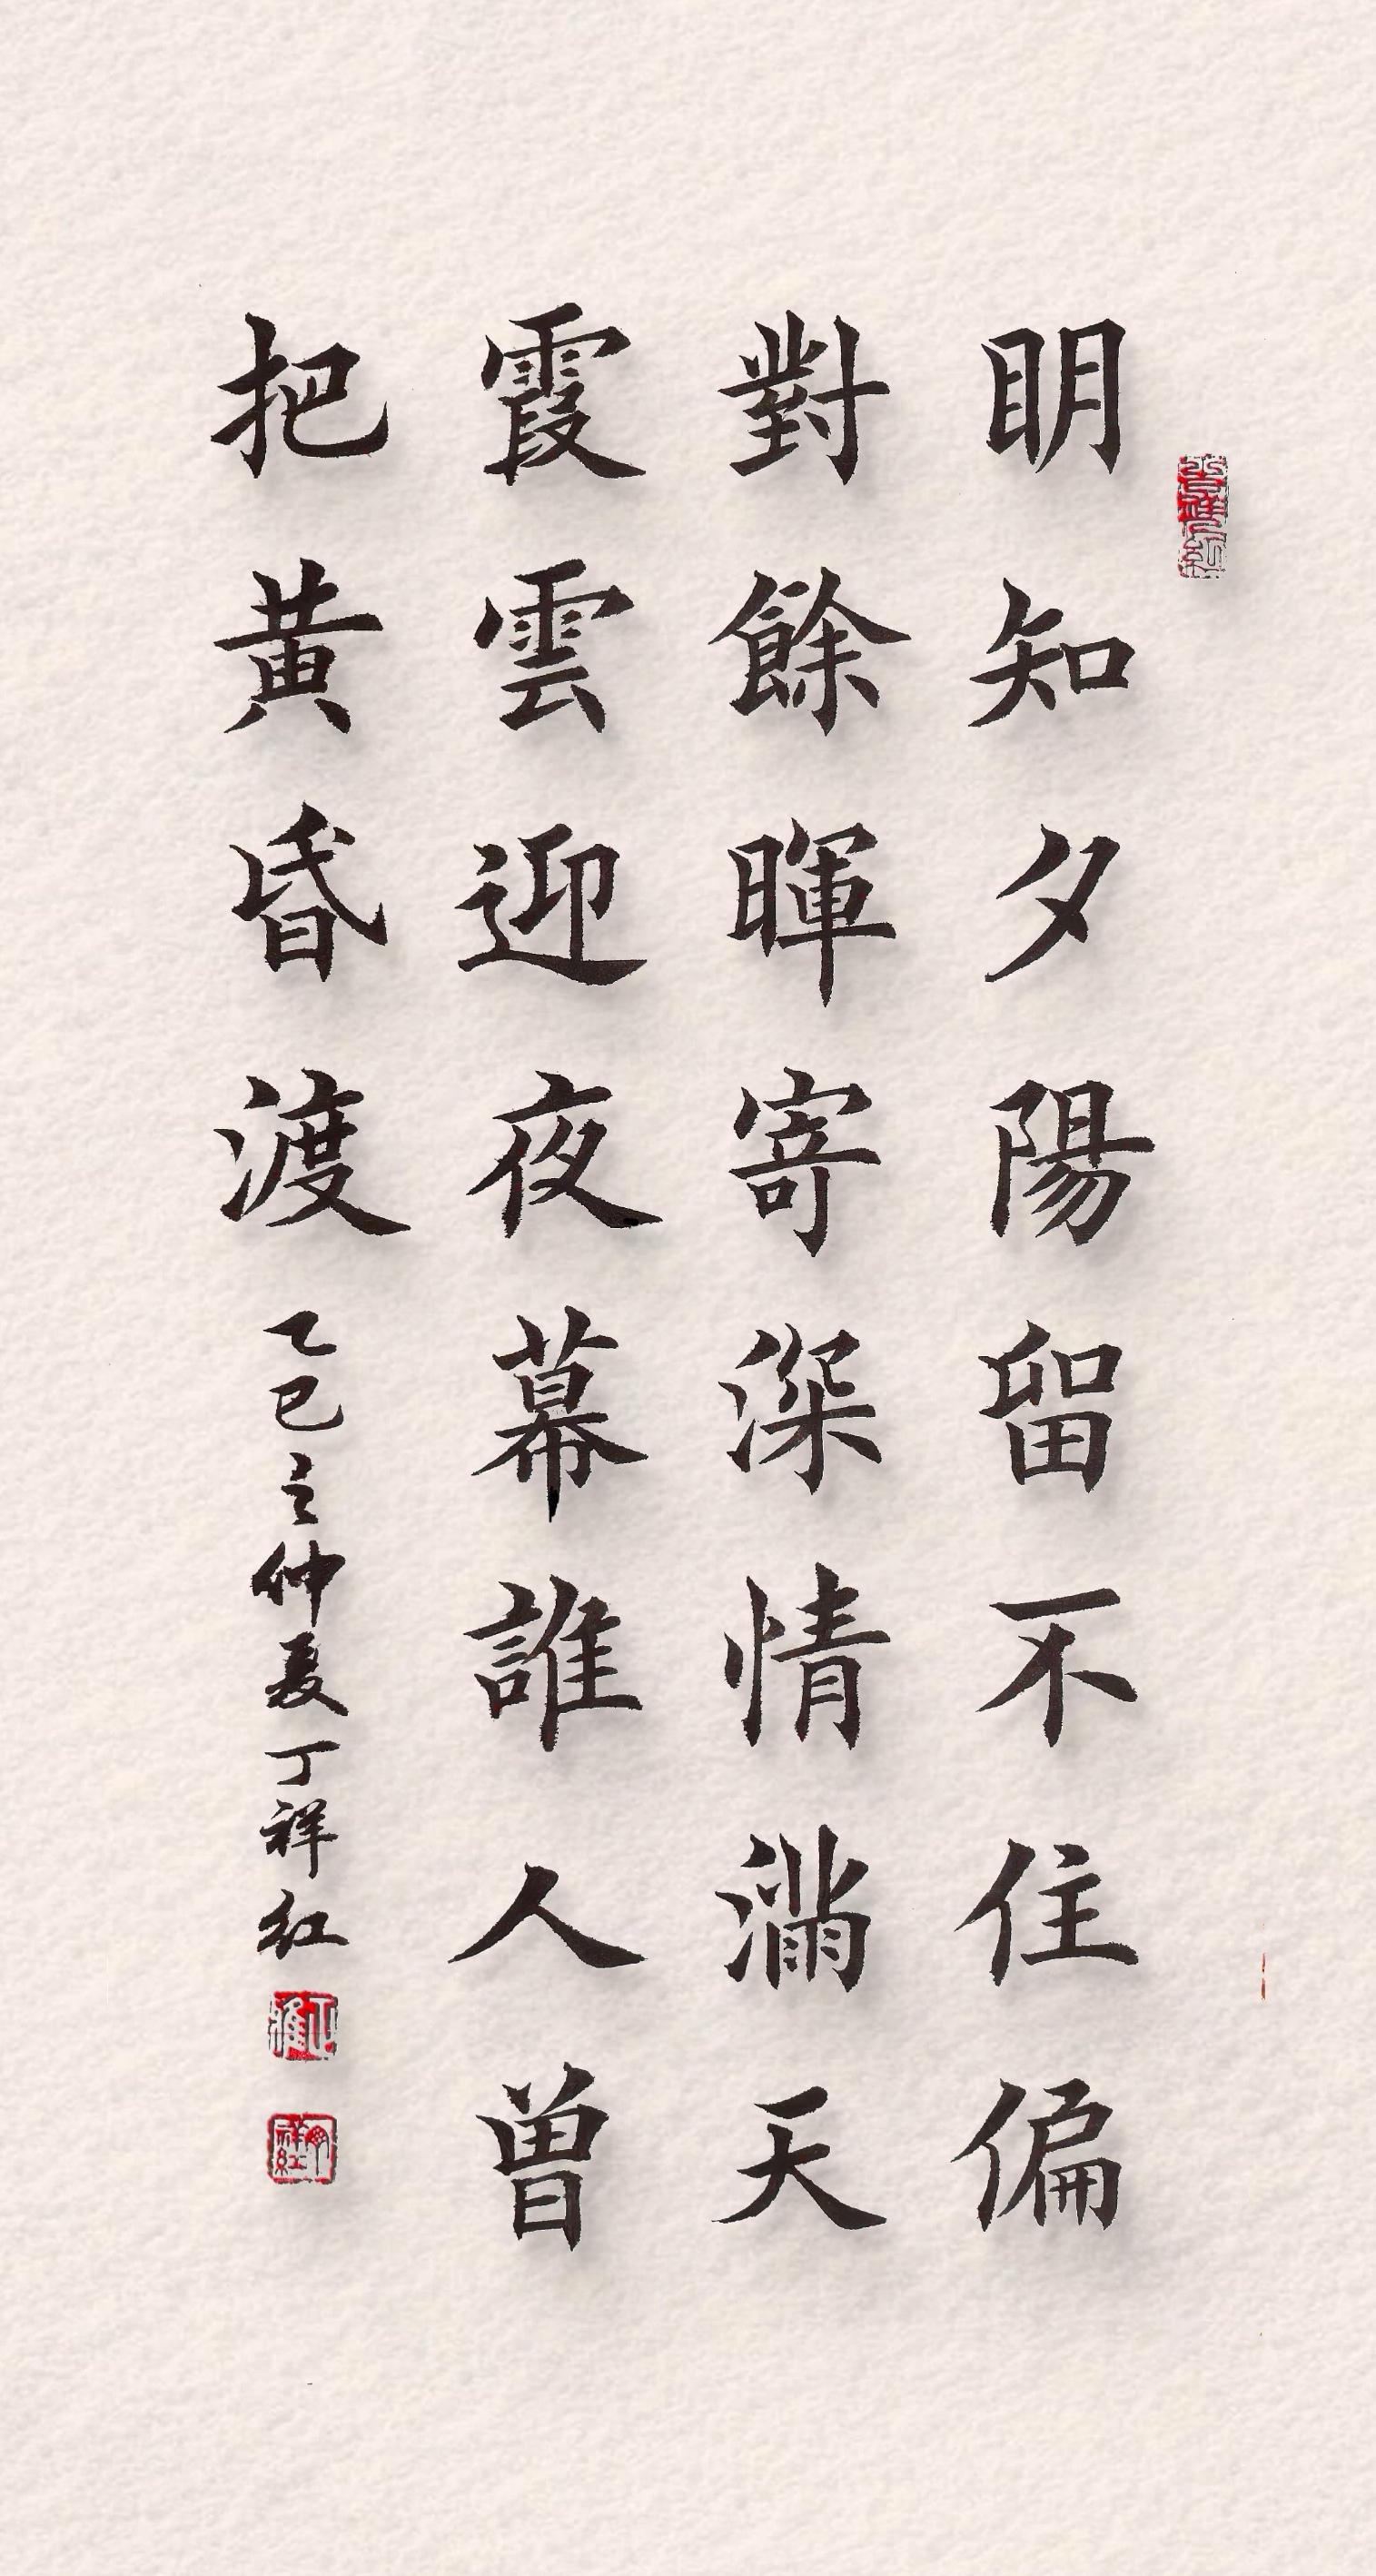 明知夕陽留不住偏
對餘暉寄深情滿天
霞雲迎夜幕誰人曾
把黃昏渡
乙巳之仲夏丁祥红